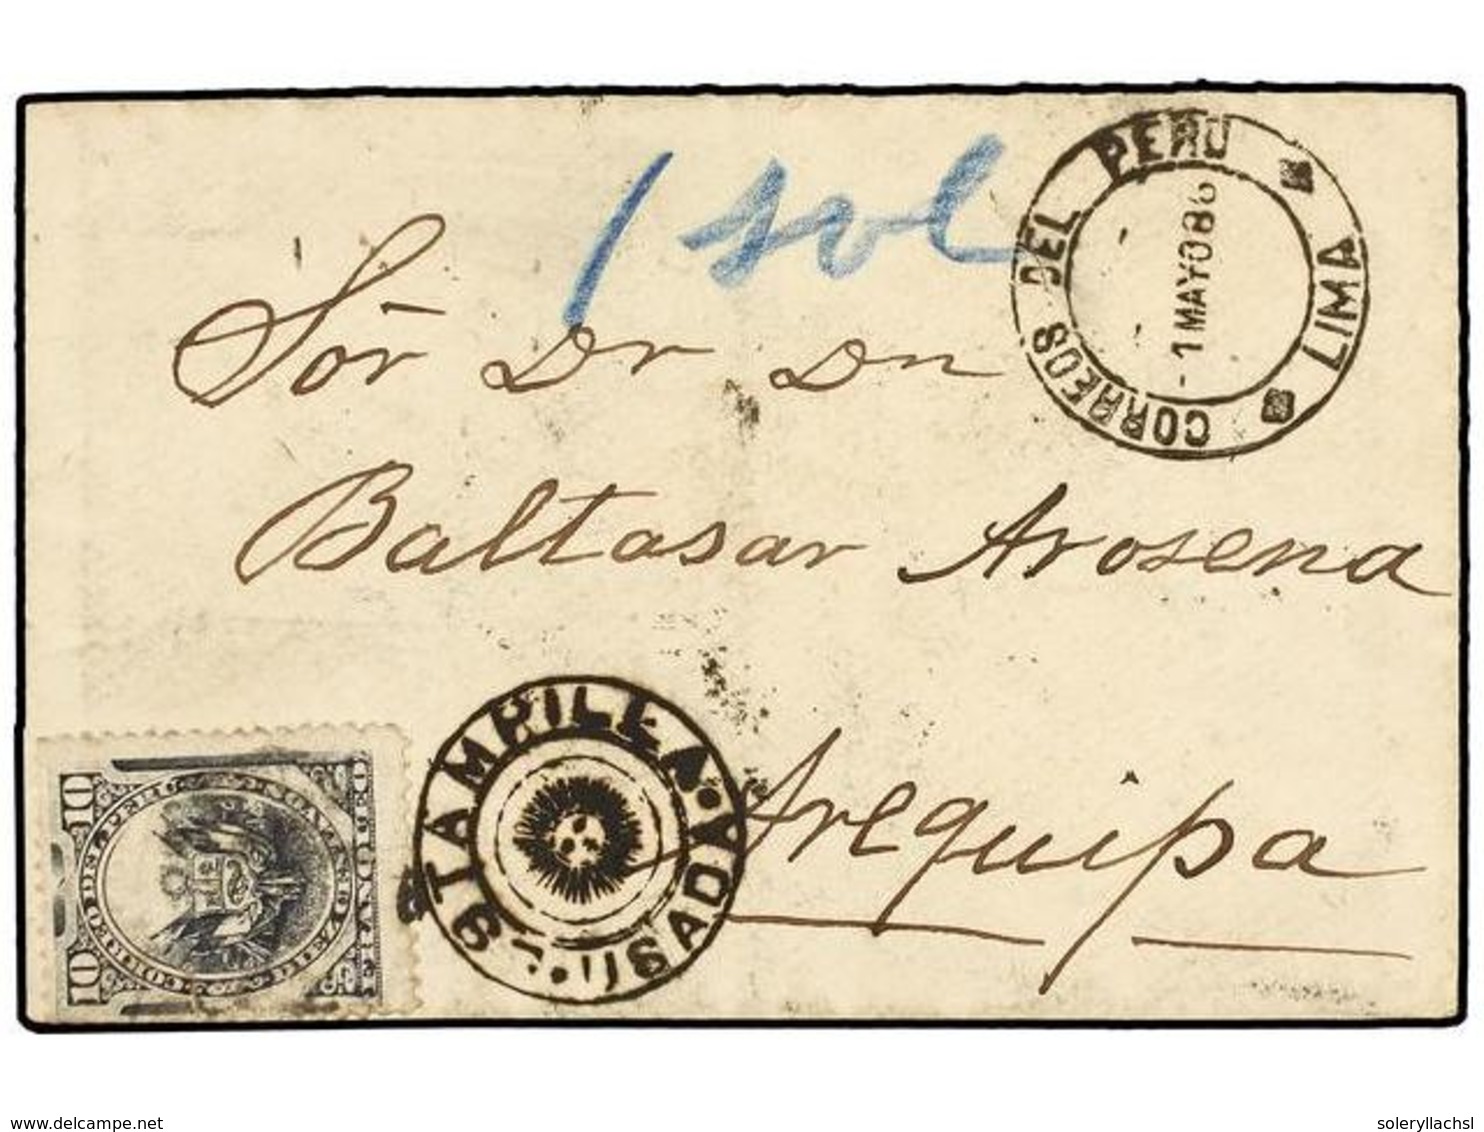 1 sol
CORREOS DEL PERU
LIMA
1 MAYO 86
Sōr Dr Dn
Baltasar Arosena
Arequipa
ESTAMPILLA USADA
10 10
www.delcampe.net
soleryllachsl